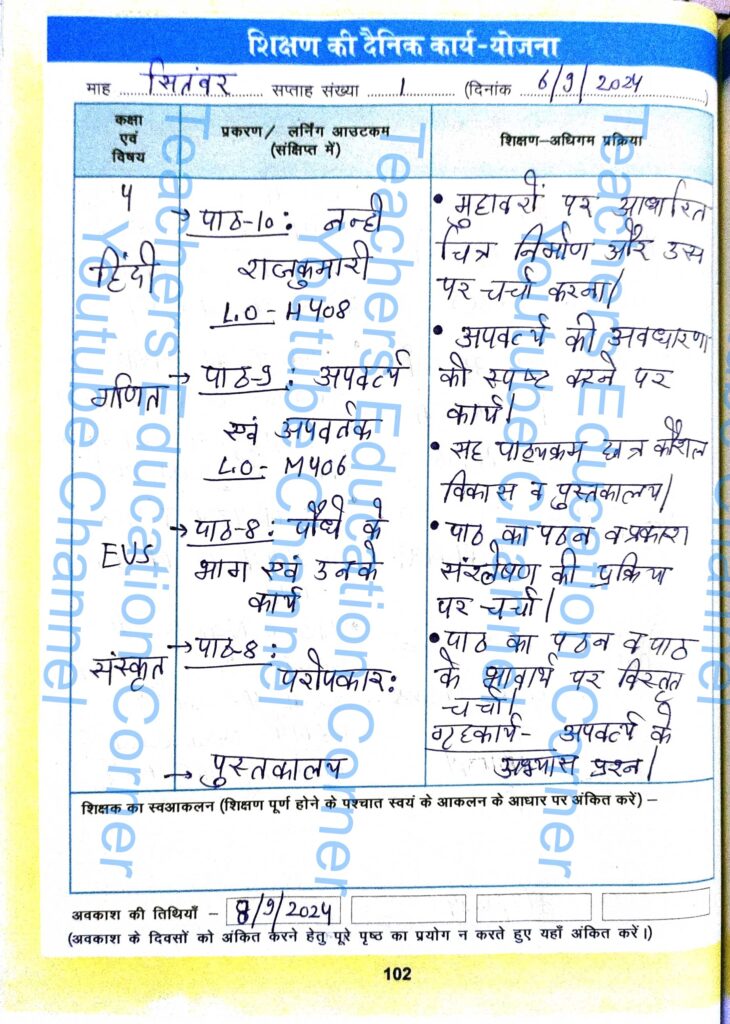 शिक्षण की दैनिक कार्य-योजना
माह सितंबर सप्ताह संख्या 1 (दिनांक 6/9/2024)
कक्षा एवं विषय
प्रकरण/ लर्निंग आउटकम (संक्षिप्त में)
शिक्षण-अधिगम प्रक्रिया
4
हिंदी
→ पाठ-10: नन्ही
राजकुमारी
L.O - H408
• मुहावरों पर आधारित
चित्र निर्माण और उस
पर चर्चा करना।
गणित
→ पाठ-9: अपवर्त्य
एवं अपवर्तक
L.O- M406
• अपवर्त्य की अवधारणा
को स्पष्ट करने पर
कार्य।
• सह पाठ्यक्रम छात्र कौशल
विकास व पुस्तकालय।
EVS
→ पाठ-8: पौधे के
भाग एवं उनके
कार्य
• पाठ का पठन व प्रकाश
संश्लेषण की प्रक्रिया
पर चर्चा।
संस्कृत
→ पाठ-8:
परोपकार:
• पाठ का पठन व पाठ
के भावार्थ पर विस्तृत
चर्चा।
→ पुस्तकालय
गृहकार्य- अपवर्त्य के
अभ्यास प्रश्न।
शिक्षक का स्वआकलन (शिक्षण पूर्ण होने के पश्चात स्वयं के आकलन के आधार पर अंकित करें) –
अवकाश की तिथियाँ - 8/9/2024
(अवकाश के दिवसों को अंकित करने हेतु पूरे पृष्ठ का प्रयोग न करते हुए यहाँ अंकित करें।)
102
Teachers Education Corner
Youtube Channel
Teachers Education Corner
Youtube Channel
Teachers Education Corner
Youtube Channel